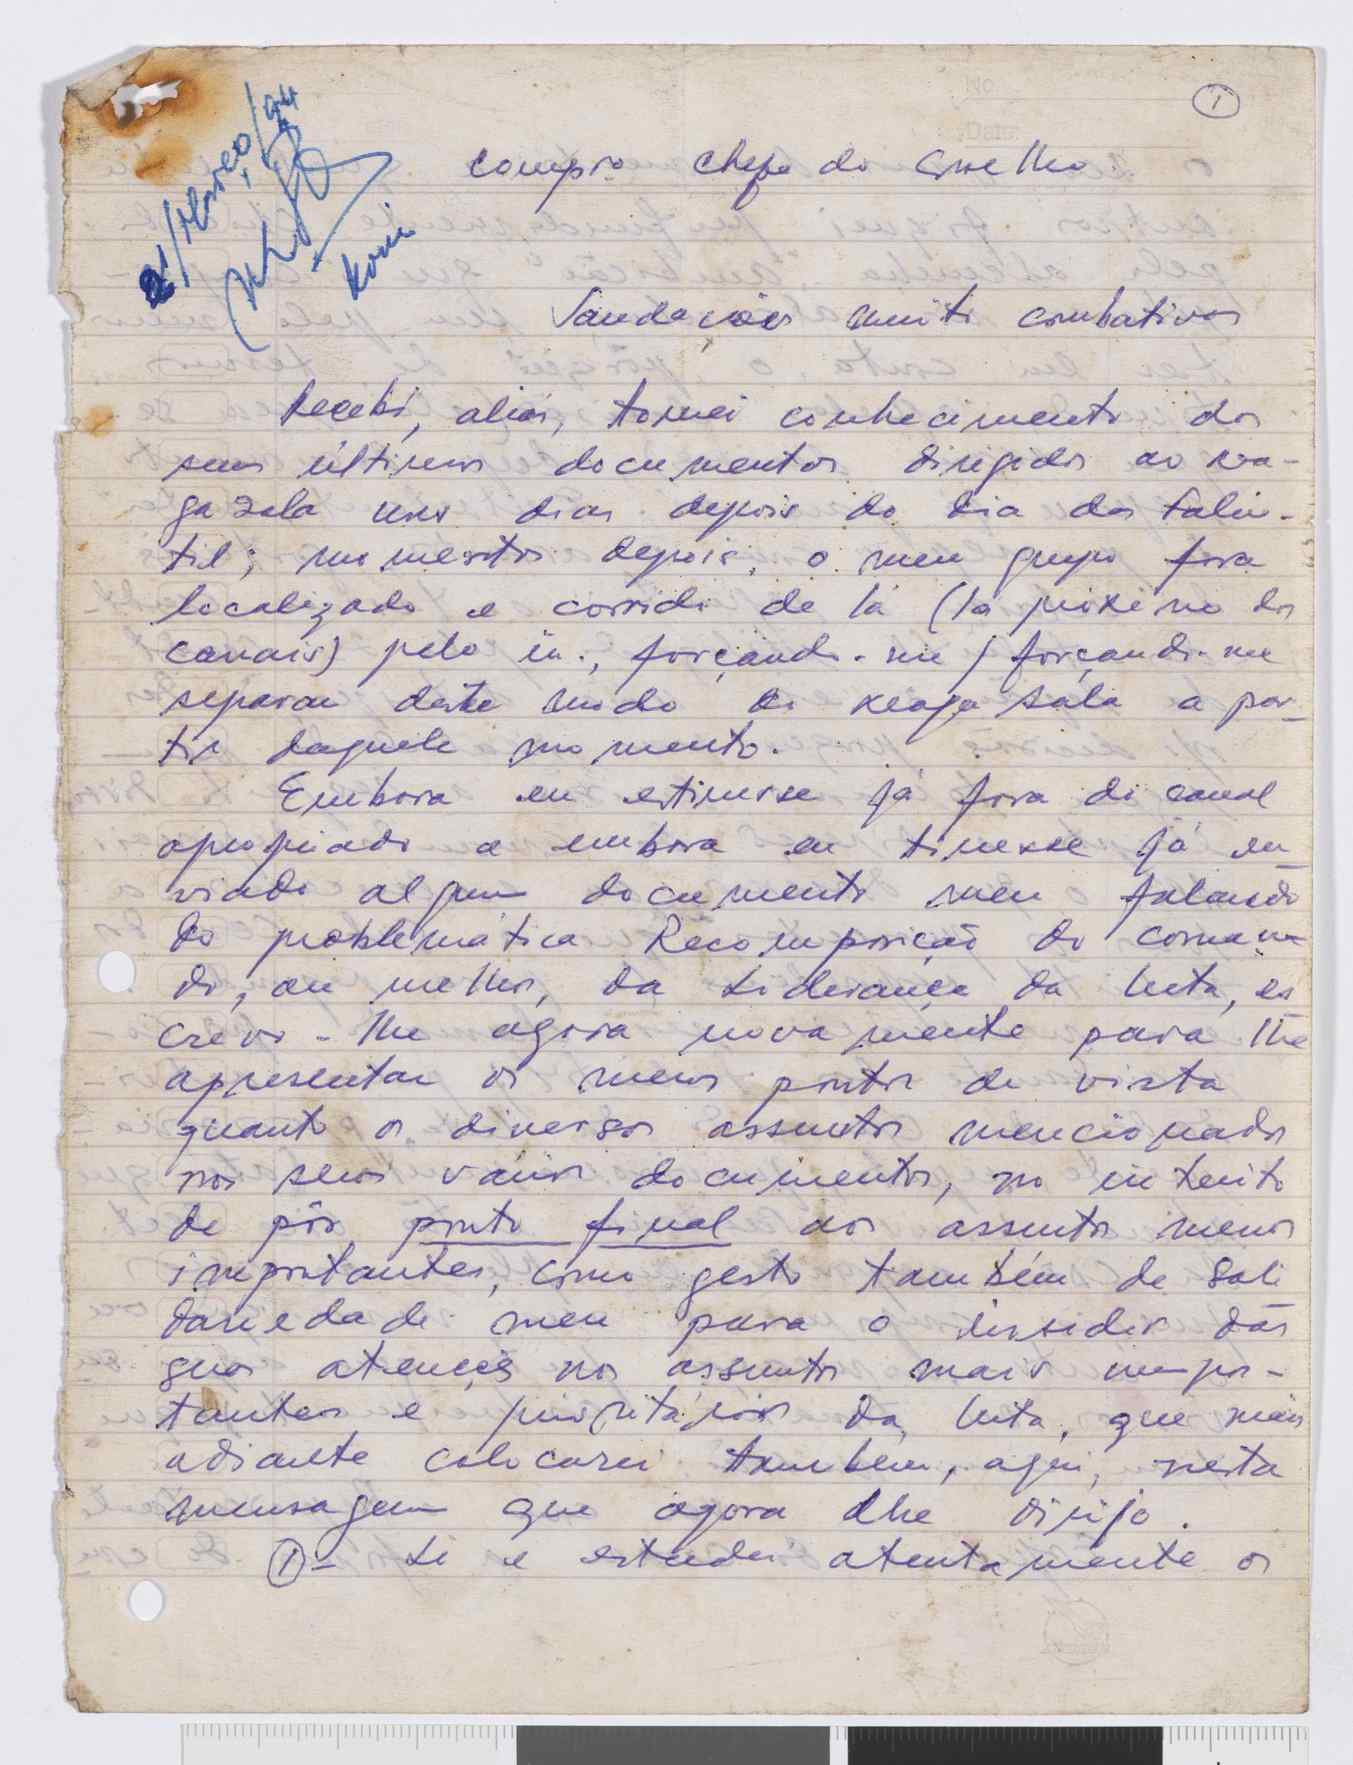 1
21/Março/94
Koni
Compro Chefe do Conselho
Saudações muito combativas
Recebi, aliás, tomei conhecimento dos
seus últimos documentos dirigidos ao Kea-
gasala uns dias depois do dia das Falin-
til; momentos depois, o meu grupo fora
localizado e corrido de lá (lá próximo dos
canais) pelo in., forçando-me / forçando-me
separar deste modo do Keagasala a par-
tir daquele momento.
Embora eu estivesse já fora do canal
apropriado e embora eu tivesse já en-
viado algum documento meu falando
da problemática Recomposição do coman-
do, ou melhor, da Liderança da luta, es
crevo-lhe agora novamente para lhe
apresentar os meus pontos de vista
quanto os diversos assuntos mencionados
nos seus vários documentos, no intuito
de pôr ponto final aos assuntos menos
importantes, como gesto também de soli
dariedade meu para o incidir das
suas atenções nos assuntos mais impor-
tantes e prioritários da luta, que mais
adiante colocarei também, aqui, nesta
mensagem que agora lhe dirijo.
1- Li e estudei atentamente os